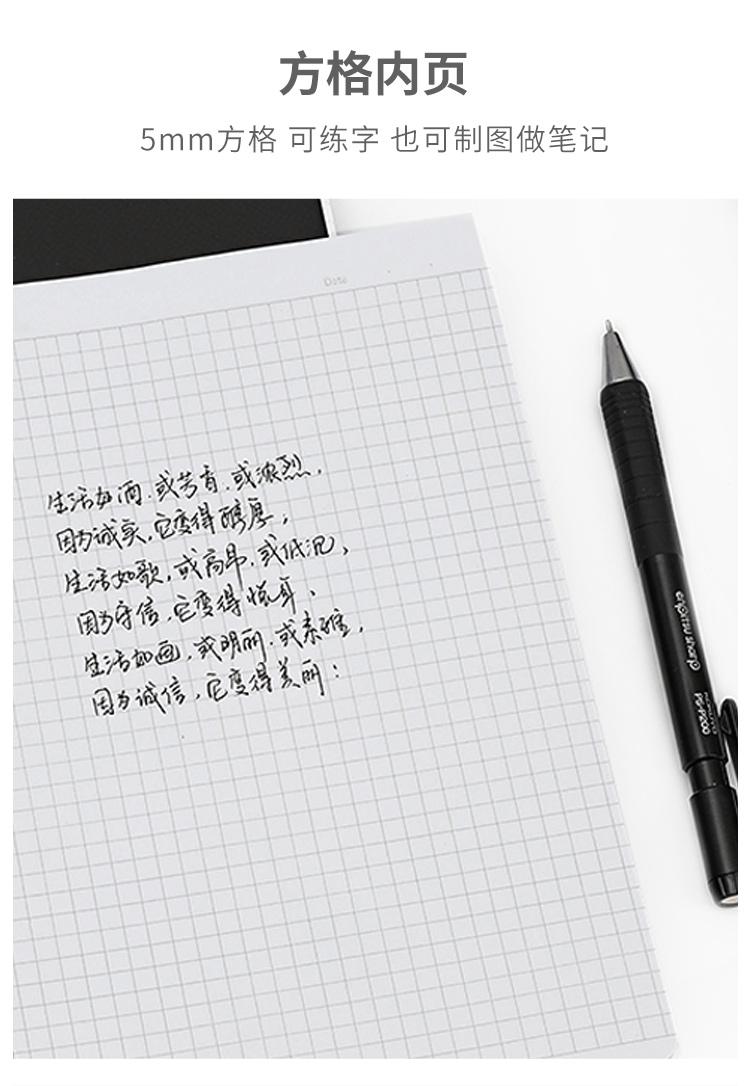 方格内页
5mm方格 可练字 也可制图做笔记
Date
生活如酒,或芳香,或浓烈,
因为诚实,它变得醇厚;
生活如歌,或高昂,或低沉,
因为守信,它变得悦耳、
生活如画,或明丽,或素雅,
因为诚信,它变得美丽:
enpitsu sharp
KOKUYO
PS-P200